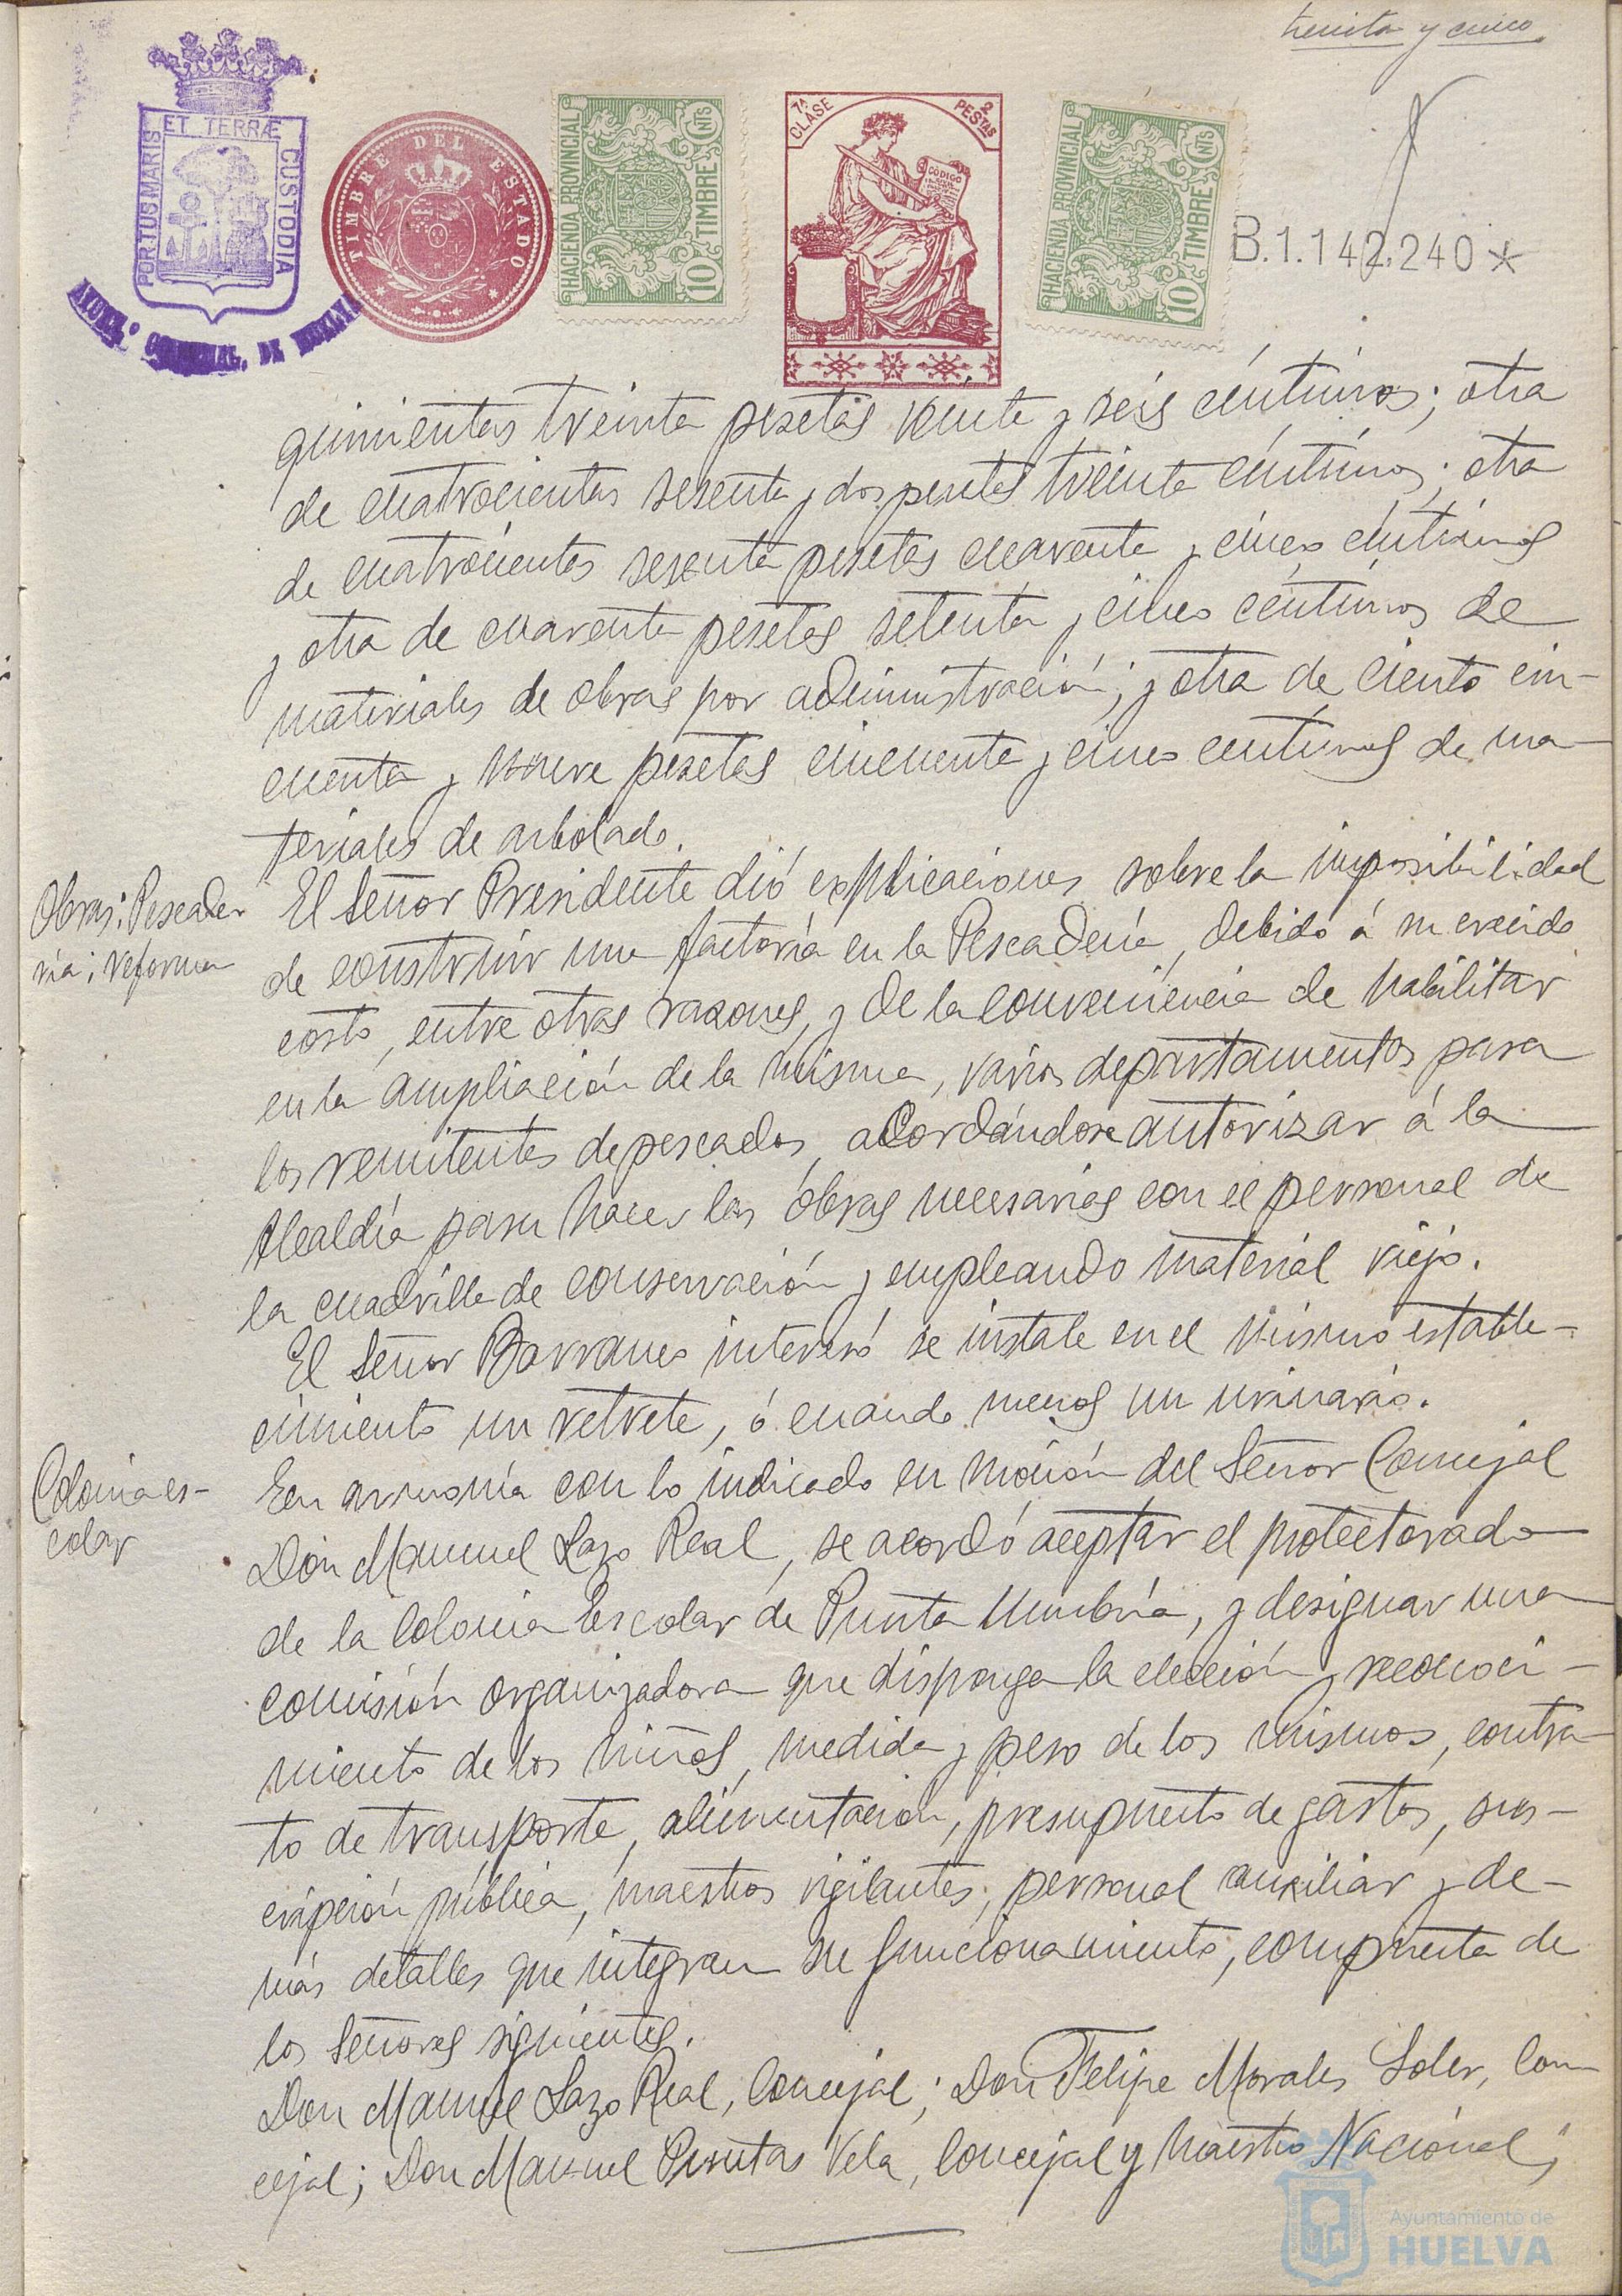 treinta y cinco
PORTUS MARIS ET TERRÆ CUSTODIA
TIMBRE DEL ESTADO
HACIENDA PROVINCIAL
10 CNTS
TIMBRE
7ª CLASE
2 PESTAS
CÓDIGO
HACIENDA PROVINCIAL
10 CNTS
TIMBRE
B.1.142.240*
quinientas treinta pesetas veinte y seis céntimos; otra
de cuatrocientas sesenta y dos pesetas treinta céntimos; otra
de cuatrocientas sesenta pesetas cuarenta y cinco céntimos
y otra de cuarenta pesetas setenta y cinco céntimos de
materiales de obras por administración; y otra de ciento cin-
cuenta y nueve pesetas cincuenta y cinco centimos de ma-
teriales de arbolado.
Obras: Pescader
ria: reforma
El Señor Presidente dió explicaciones sobre la imposibilidad
de construir una factoría en la Pescadería, debido á su crecido
costo, entre otras razones, y de la conveniencia de habilitar
en la ampliación de la misma, varios departamentos para
los remitentes de pescados, acordándose autorizar á la
Alcaldía para hacer las obras necesarias con el personal de
la cuadrilla de conservación y empleando material viejo.
El Señor Barranco interesó se instale en el mismo estable-
cimiento un retrete, ó cuando menos un urinario.
Colonia es-
colar
En armonía con lo indicado en moción del Señor Concejal
Don Manuel Lazo Real, se acordó aceptar el protectorado
de la Colonia Escolar de Punta Umbría, y designar una
comisión organizadora que disponga la elección y reconoci-
miento de los niños, medida y peso de los mismos, contra-
to de transporte, alimentación, presupuesto de gastos, sus-
cripción pública, maestros vigilantes, personal auxiliar y de-
más detalles que integran su funcionamiento, compuesta de
los Señores siguientes.
Don Manuel Lazo Real, Concejal; Don Felipe Morales Soler, Con-
cejal; Don Manuel Puntas Vela, Concejal y Maestro Nacional;
Ayuntamiento de
HUELVA